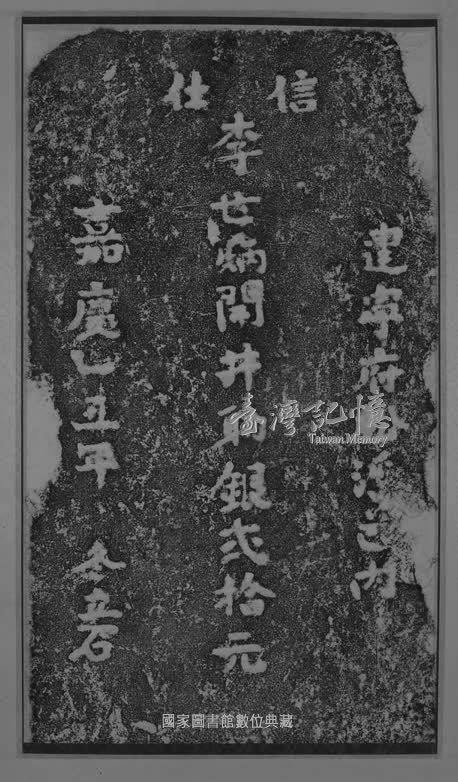 信仕
建寧府邑內
李世開井銀弍拾元
嘉慶乙丑年 冬立石
臺灣記憶
Taiwan Memory
國家圖書館數位典藏